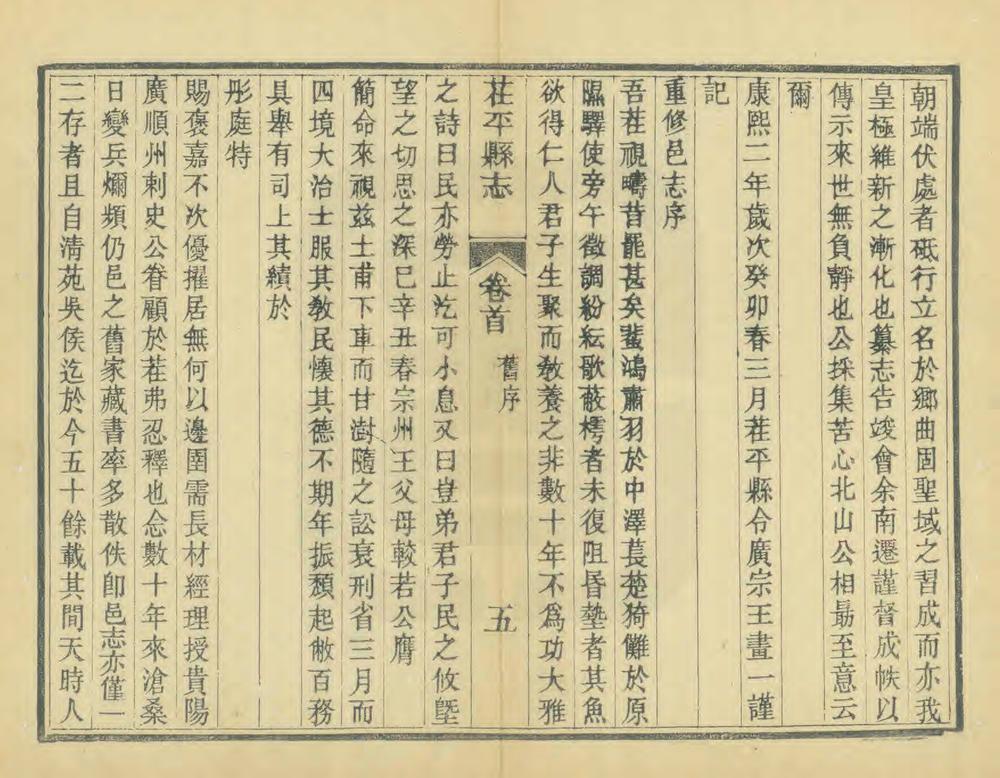 朝端伏處者砥行立名於鄉曲固聖域之習成而亦我
皇極維新之漸化也纂志告竣會余南遷謹督成帙以
傳示來世無負靜也公採集苦心北山公相勗至意云
爾
康熙二年歲次癸卯春三月茌平縣令廣宗王畫一謹
記
重修邑志序
吾茌視疇昔罷甚矣蜚鴻肅羽於中澤萇楚猗儺於原
隰驛使旁午徵調紛紜歌蔽樗者未復阻昏墊者其魚
欲得仁人君子生聚而敎養之非數十年不爲功大雅
茌平縣志
卷首
舊序
五
之詩曰民亦勞止汔可小息又曰豈弟君子民之攸墍
望之切思之深已辛丑春宗州王父母較若公膺
簡命來視兹土甫下車而甘澍隨之訟衰刑省三月而
四境大治士服其敎民懷其德不期年振頽起敝百務
具舉有司上其績於
彤庭特
賜褒嘉不次優擢居無何以邊圉需長材經理授貴陽
廣順州刺史公眷顧於茌弗忍釋也念數十年來滄桑
日變兵燹頻仍邑之舊家藏書率多散佚卽邑志亦僅一
二存者且自淸苑吳侯迄於今五十餘載其間天時人